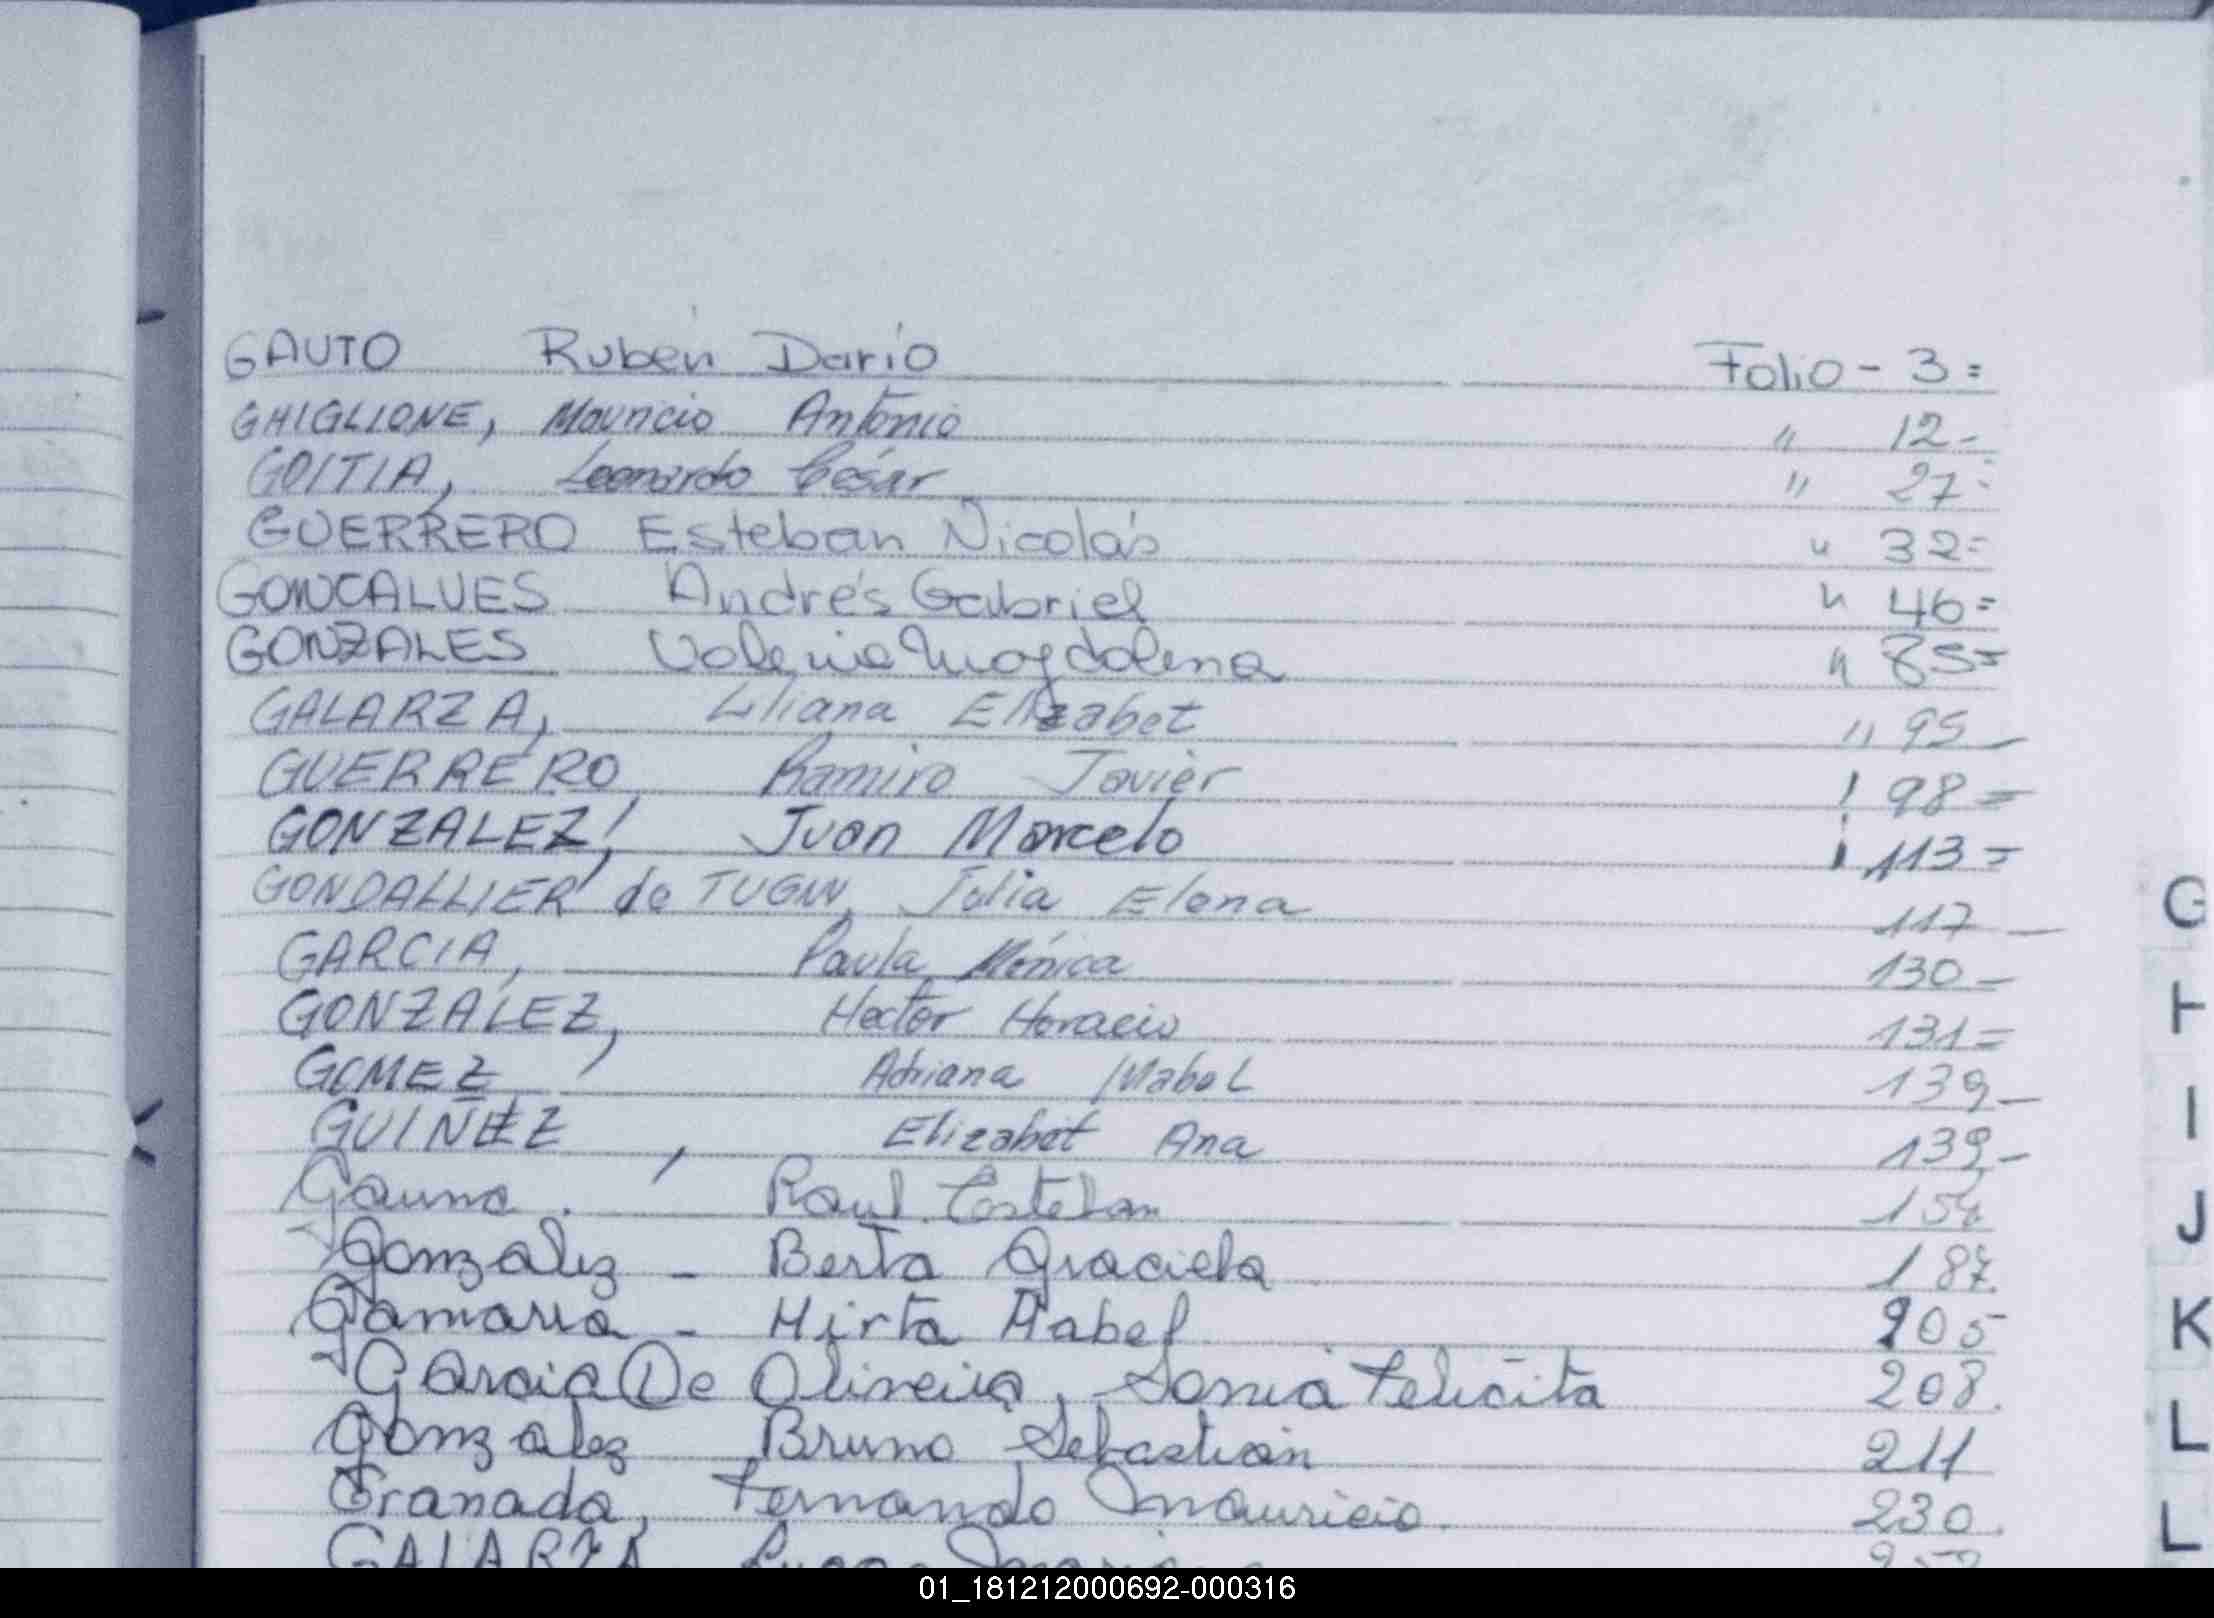 GAUTO Rubén Darío Folio - 3 =
GHIGLIONE, Mauricio Antonio " 12 -
GOITIA, Leonardo César " 27 -
GUERRERO Esteban Nicolás " 32 =
GONCALVES Andrés Gabriel " 46 =
GONZALES Valeria Magdalena " 85 =
GALARZA, Liliana Elizabet " 95 -
GUERRERO, Ramiro Javier 98 =
GONZALEZ, Juan Marcelo 113 =
GONDALLIER de TUGNY, Julia Elena 117 -
GARCIA, Paula Mónica 130 -
GONZALEZ, Hector Horacio 131 =
GOMEZ, Adriana Mabel 139 -
GUIÑEZ, Elizabet Ana 139 -
Gauna. Raul Esteban
Gonzalez - Berta Graciela 187.
Gamarra - Mirta Mabel 205
Garcia De Oliveira, Sonia Felicita 208.
Gonzalez Bruno Sebastián 211
Granada, Fernando Mauricio. 230.
GALARZA
G
H
I
J
K
L
L
01_181212000692-000316